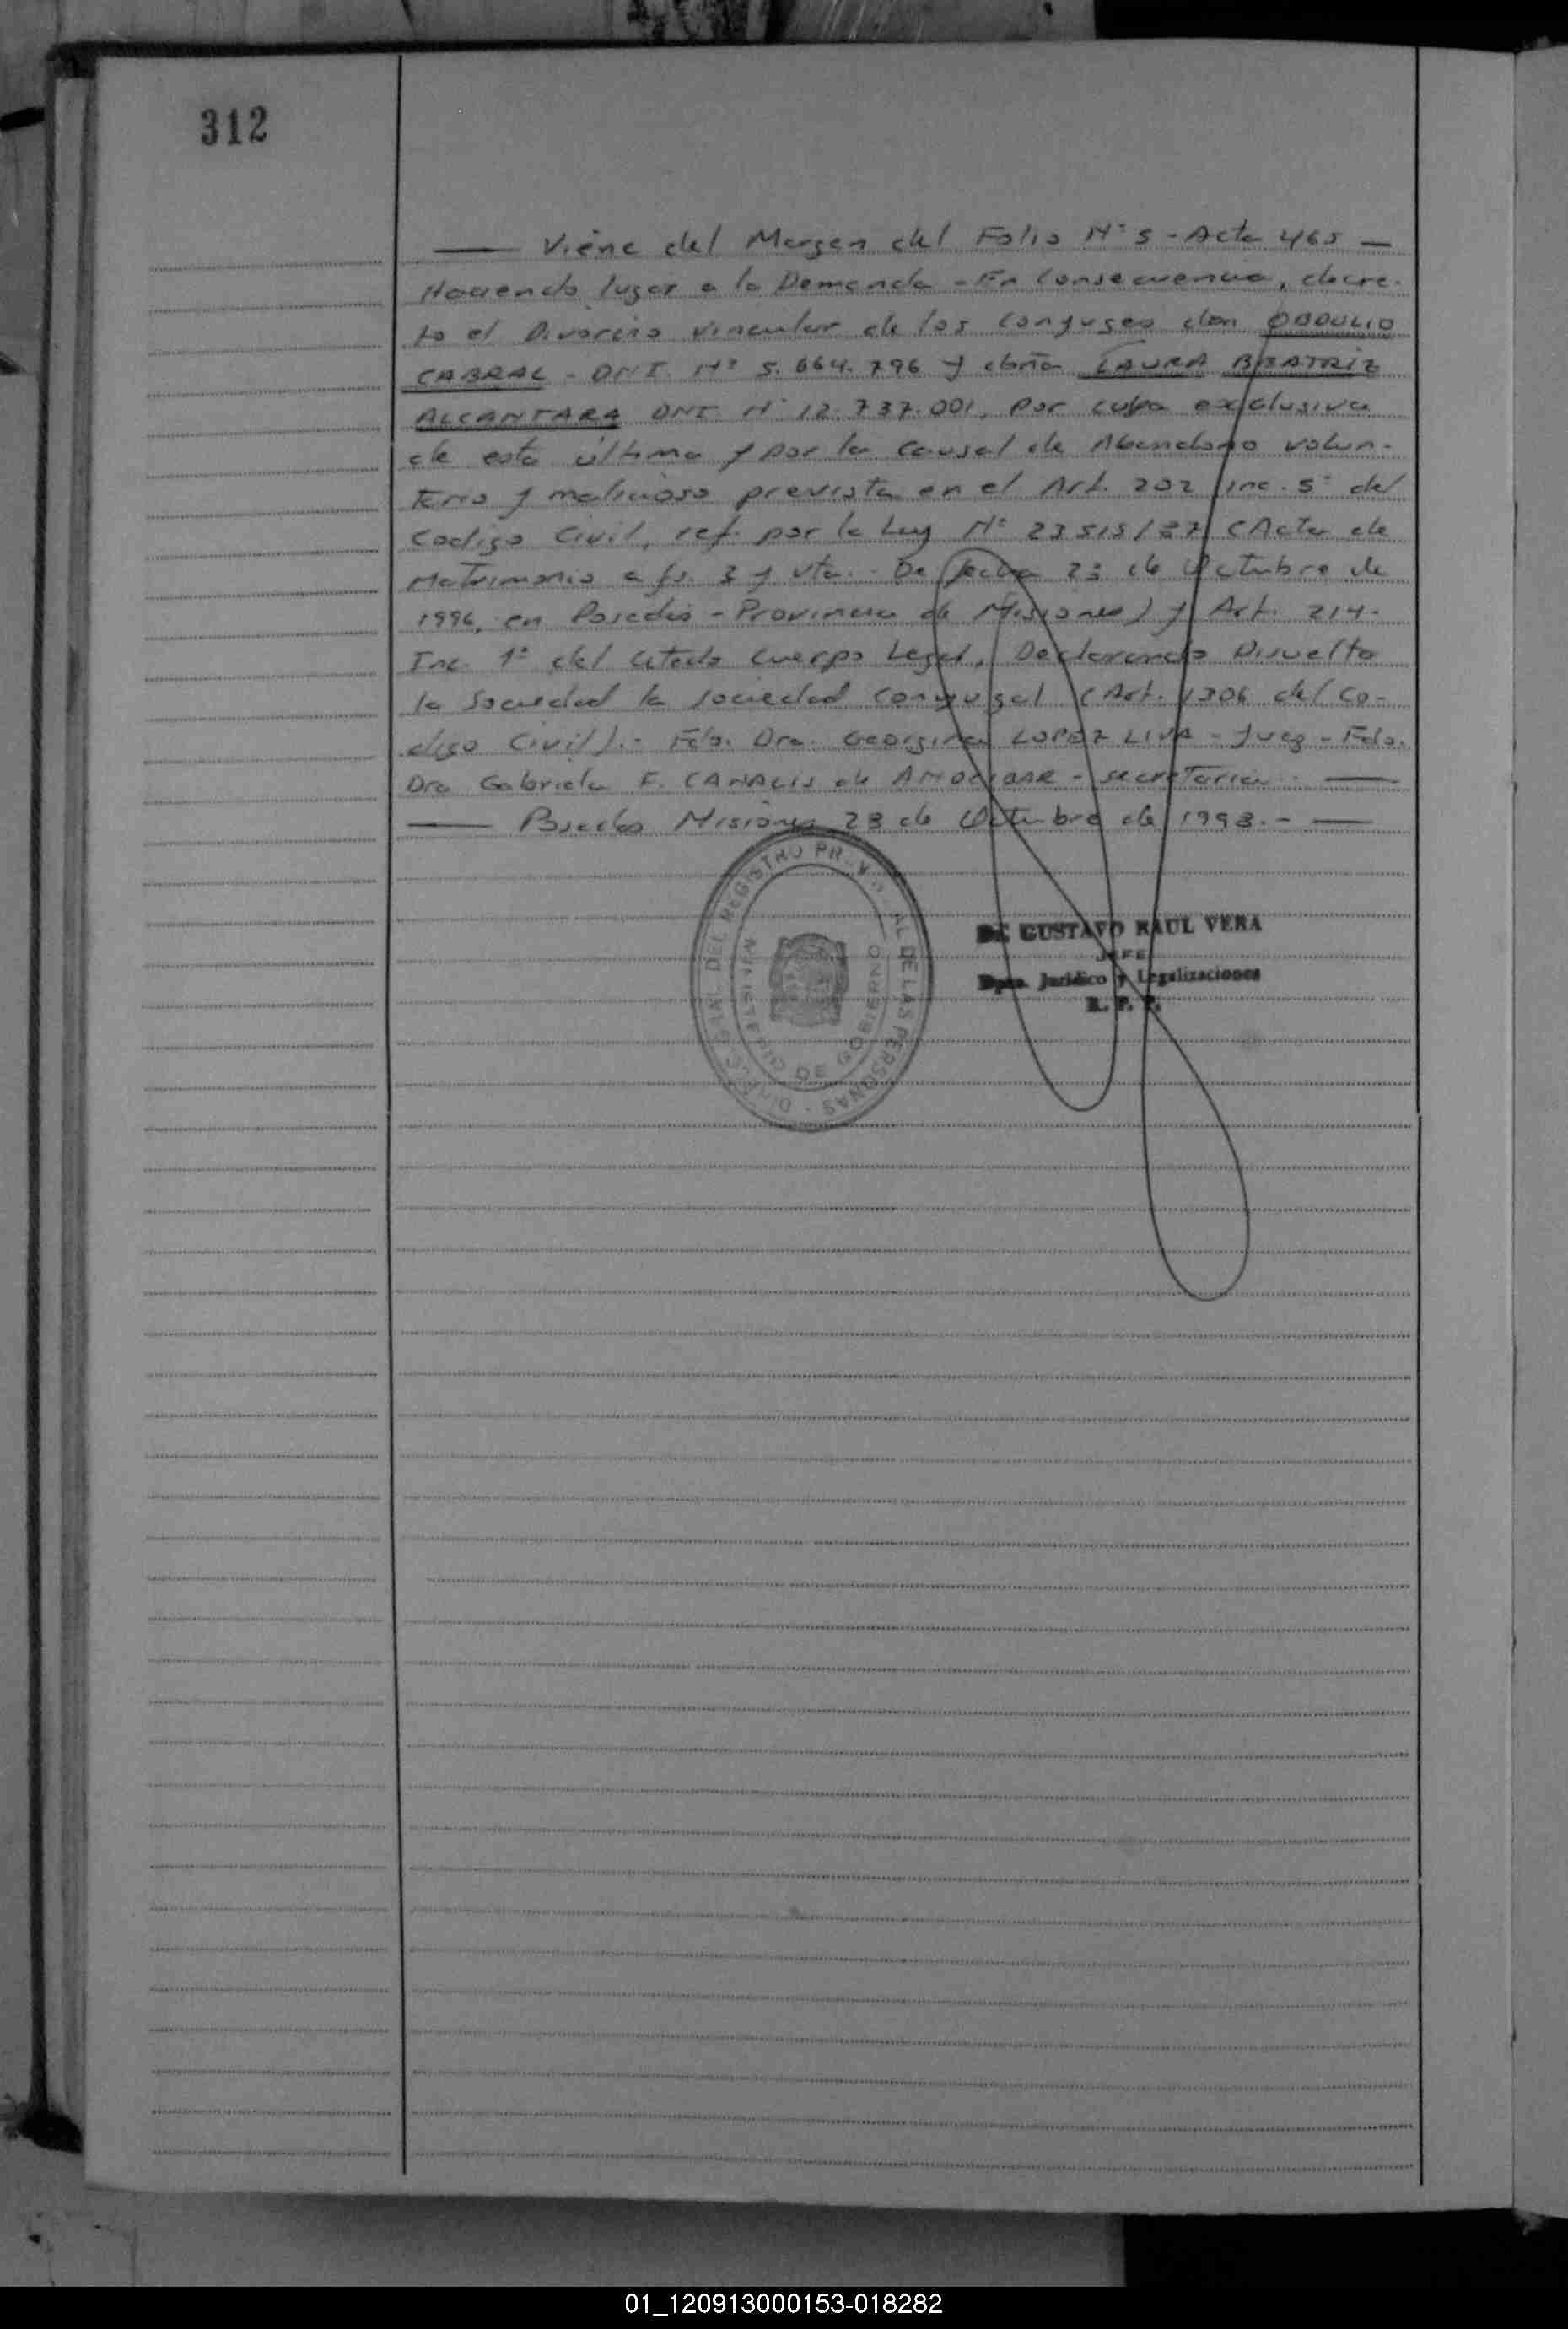 312
— Viene del Margen del Folio Nº 5 - Acta 465 —
Haciendo lugar a la Demanda - En Consecuencia, decre-
to el Divorcio vincular de los conyuges don OBDULIO
CABRAL - DNI. Nº 5.664.796 y doña LAURA BEATRIZ
ALCANTARA DNI Nº 12.737.001, por culpa exclusiva
de esta última y por la causal de Abandono volun-
tario y malicioso prevista en el Art. 202 inc. 5º del
Codigo Civil, ref. por la Ley Nº 23515/87 (Acta de
Matrimonio a fs. 3 y vta. - De fecha 23 de Octubre de
1996, en Posadas - Provincia de Misiones) y Art. 214-
Inc. 1º del citado cuerpo Legal, Declarando Disuelta
la Sociedad la sociedad conyugal (Art. 1306 del Co-
digo Civil).- Fdo. Dra. Georgina LOPEZ LIVA - Juez - Fdo.
Dra Gabriela F. CANALIS de - secretaria. —
— Posadas Misiones 28 de Octubre de 1998.- —
DIRECC. GRAL. DEL REGISTRO PROVINCIAL DE LAS PERSONAS
MINISTERIO DE GOBIERNO
GUSTAVO RAUL VERA
JEFE
Dpto. Jurídico y Legalizaciones
R. P. P.
01_120913000153-018282